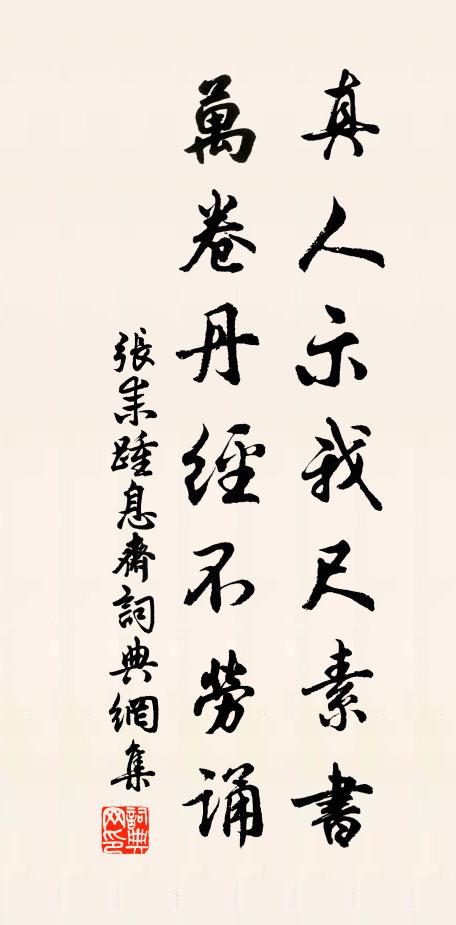 真人示我尺素書
萬卷丹經不勞誦
張耒踵息齋詞典網集
詞典網印